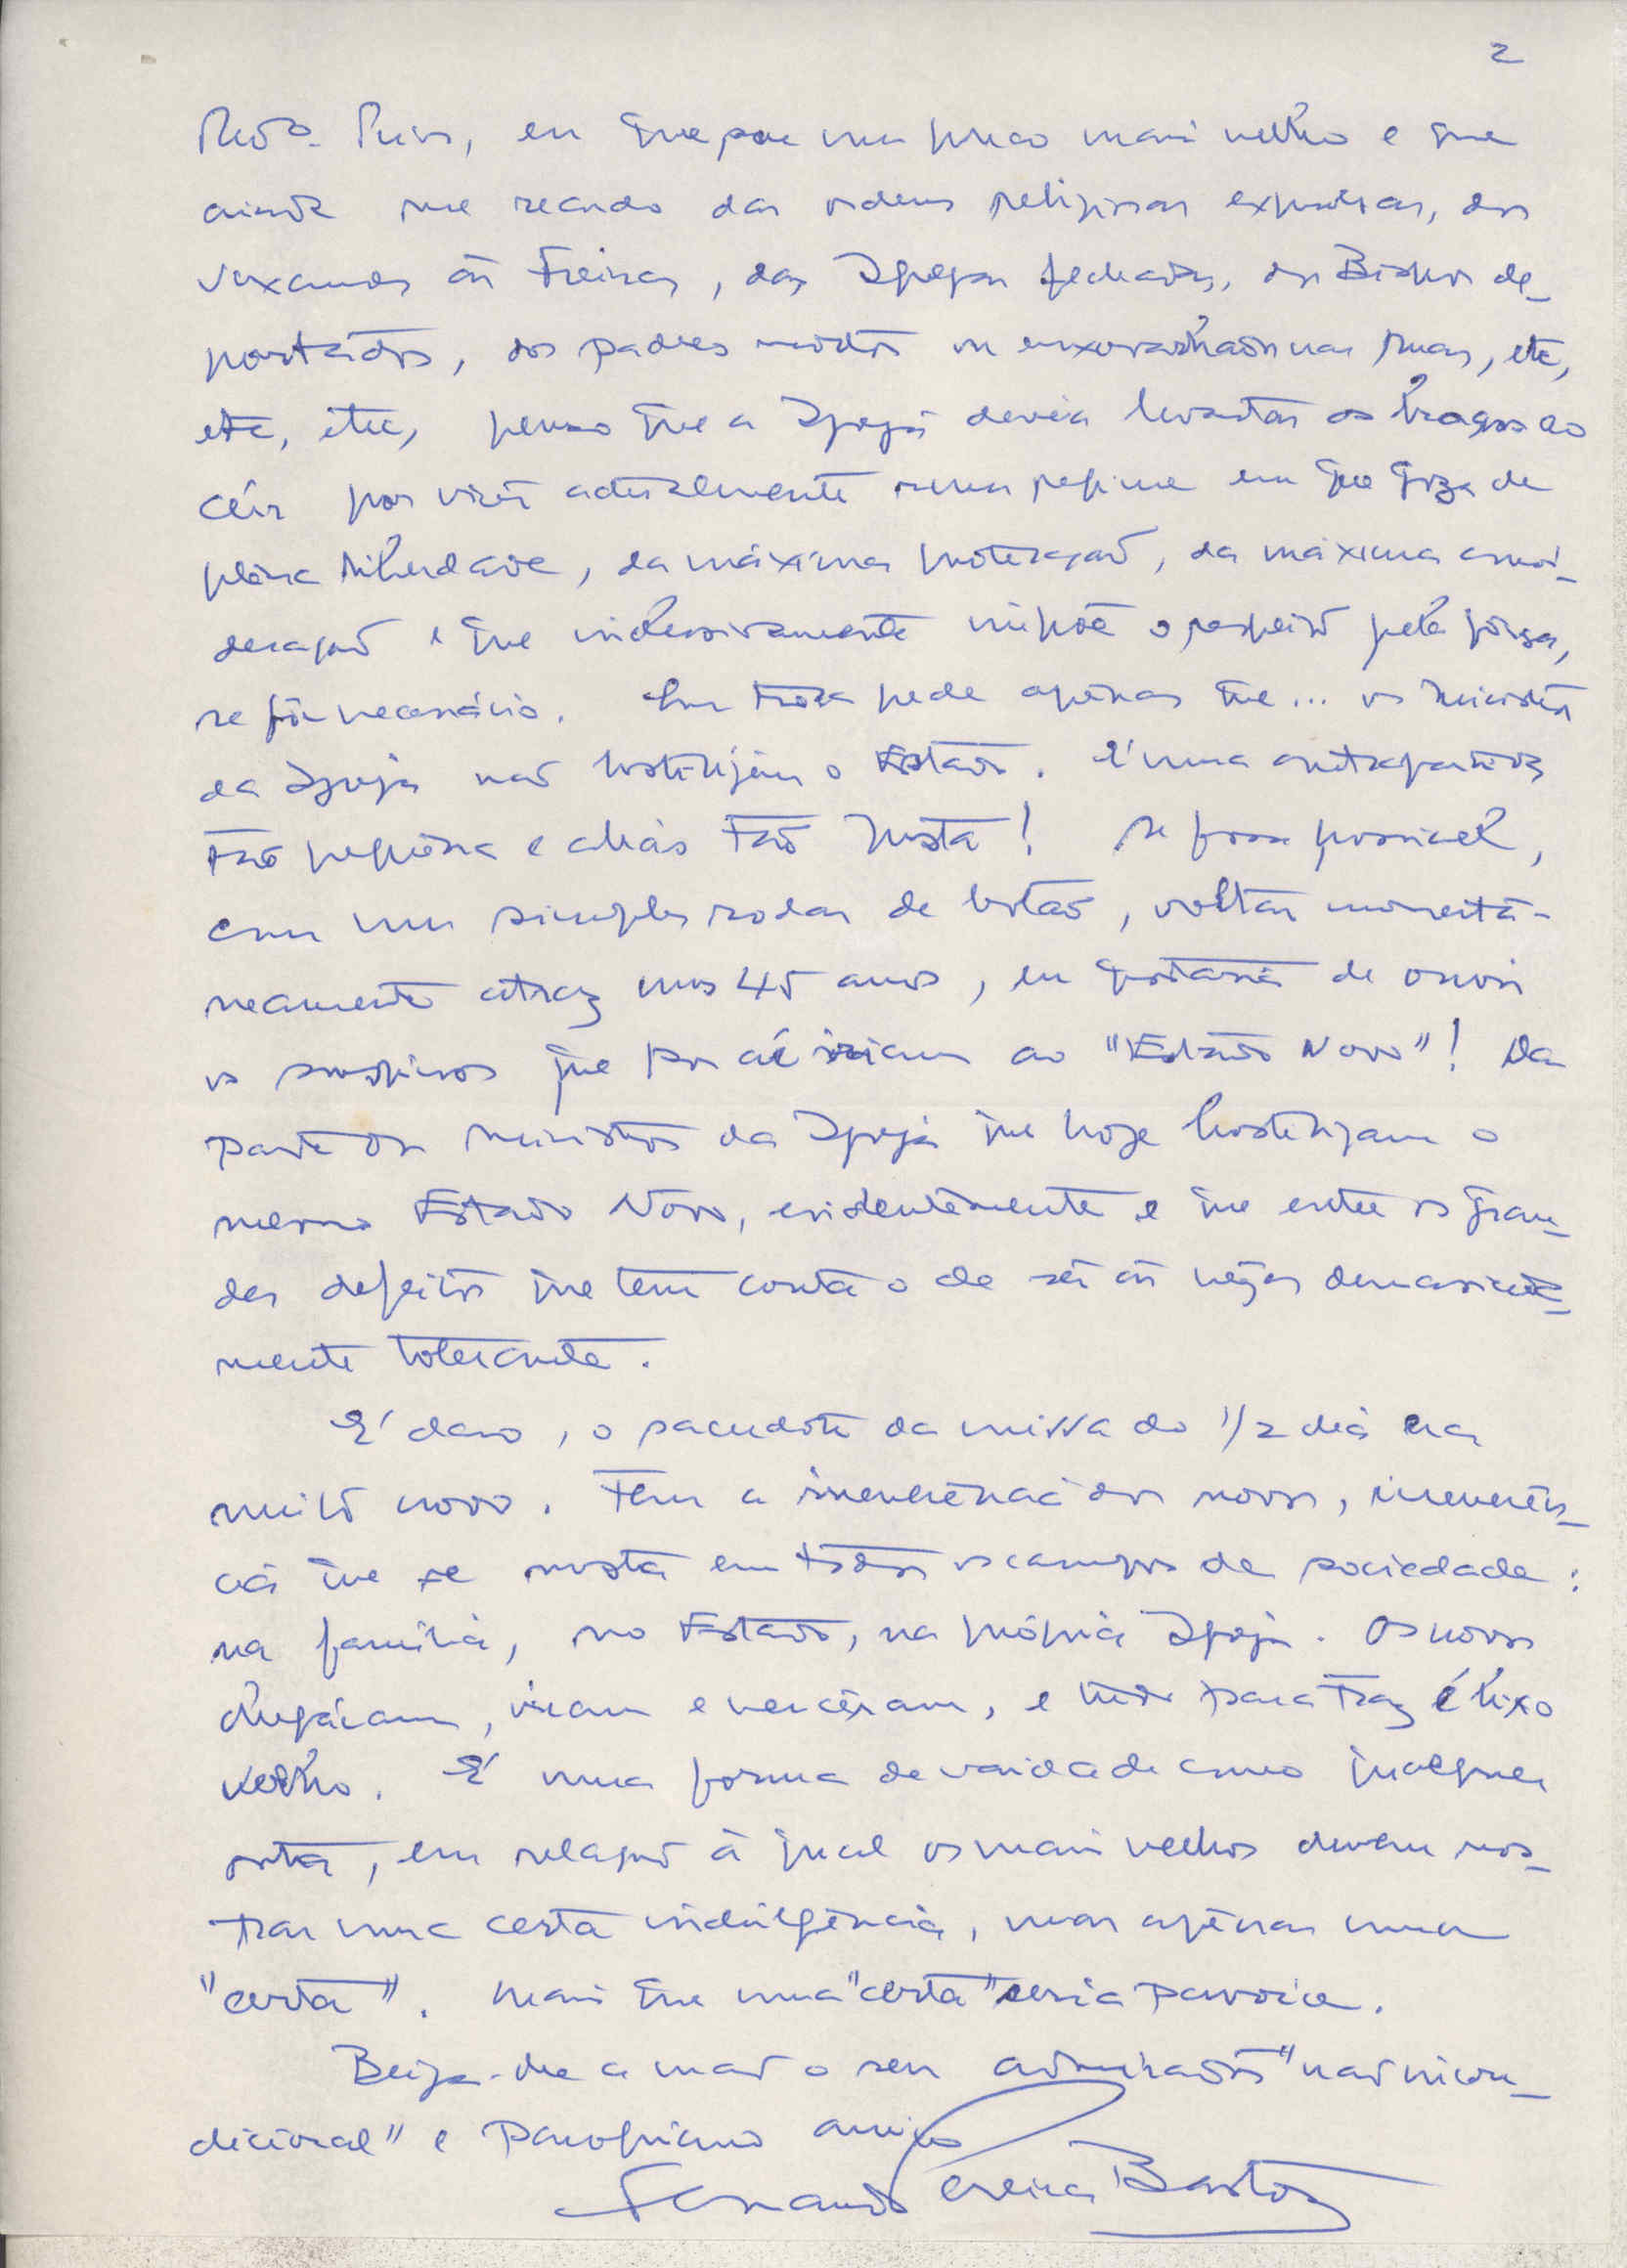 2
eu que sou um pouco mais velho e que
ainda me recordo das ordens religiosas expulsas, dos
vexames às Freiras, das Igrejas fechadas, dos Bispos de-
portados, dos padres mortos ou enxovalhados nas ruas, etc,
etc, etc, penso que a Igreja devia levantar os braços ao
céu por viver actualmente num regime em que goza de
plena liberdade, da máxima protecção, da máxima consi-
deração e que inclusivamente impõe o respeito pela força,
se fôr necessário. Em troca pede apenas que... os Ministros
da Igreja não hostilizem o Estado. É uma contrapartida
tão pequena e aliás tão justa! Se fosse possivel,
com um simples rodar de botão, voltar momentâ-
neamente atraz uns 45 anos, eu gostaria de ouvir
os suspiros que por aí iriam ao "Estado Novo"! Da
parte dos Ministros da Igreja que hoje hostilizam o
mesmo Estado Novo, evidentemente e que entre os gran-
des defeitos que tem conta o de ser às vezes demasiada-
mente tolerante.
É claro, o sacerdote da missa do 1/2 dia era
muito novo. Tem a irreverência dos novos, irreverên-
cia que se nota em todos os campos da sociedade:
na familia, no Estado, na própria Igreja. Os novos
chegáram, viram e venceram, e tudo para traz é lixo
velho. É uma forma de vaidade como qualquer
outra, em relação à qual os mais velhos devem mos-
trar uma certa indulgência, mas apenas uma
"certa". Mais que uma "certa" seria parvoice.
Beija-lhe a mão o seu admirador "não incon-
dicional" e amigo
Fernando Pereira Bastos